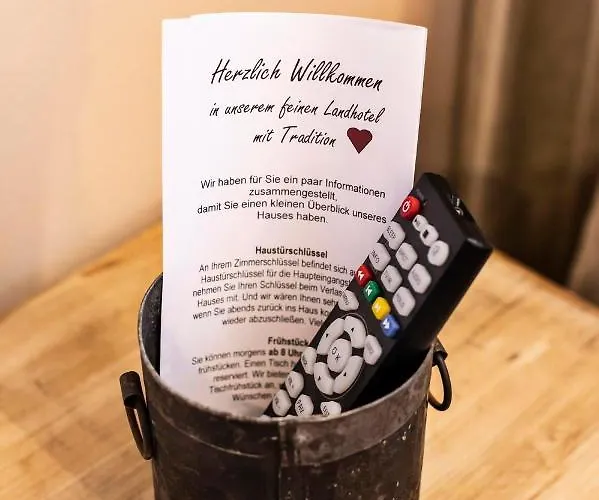 Herzlich Willkommen
in unserem feinen Landhotel
mit Tradition
Wir haben für Sie ein paar Informationen
zusammengestellt,
damit Sie einen kleinen Überblick unseres
Hauses haben.
Haustürschlüssel
An Ihrem Zimmerschlüssel befindet sich
Haustürschlüssel für die Haupteingangst
nehmen Sie Ihren Schlüssel beim Verlas
Hauses mit. Und wir wären Ihnen seh
wenn Sie abends zurück ins Haus ko
wieder abzuschließen. Viel
Frühstück
Sie können morgens ab 8 Uhr
frühstücken. Einen Tisch
reserviert. Wir biete
Tischfrühstück an,
Wünschen
OK